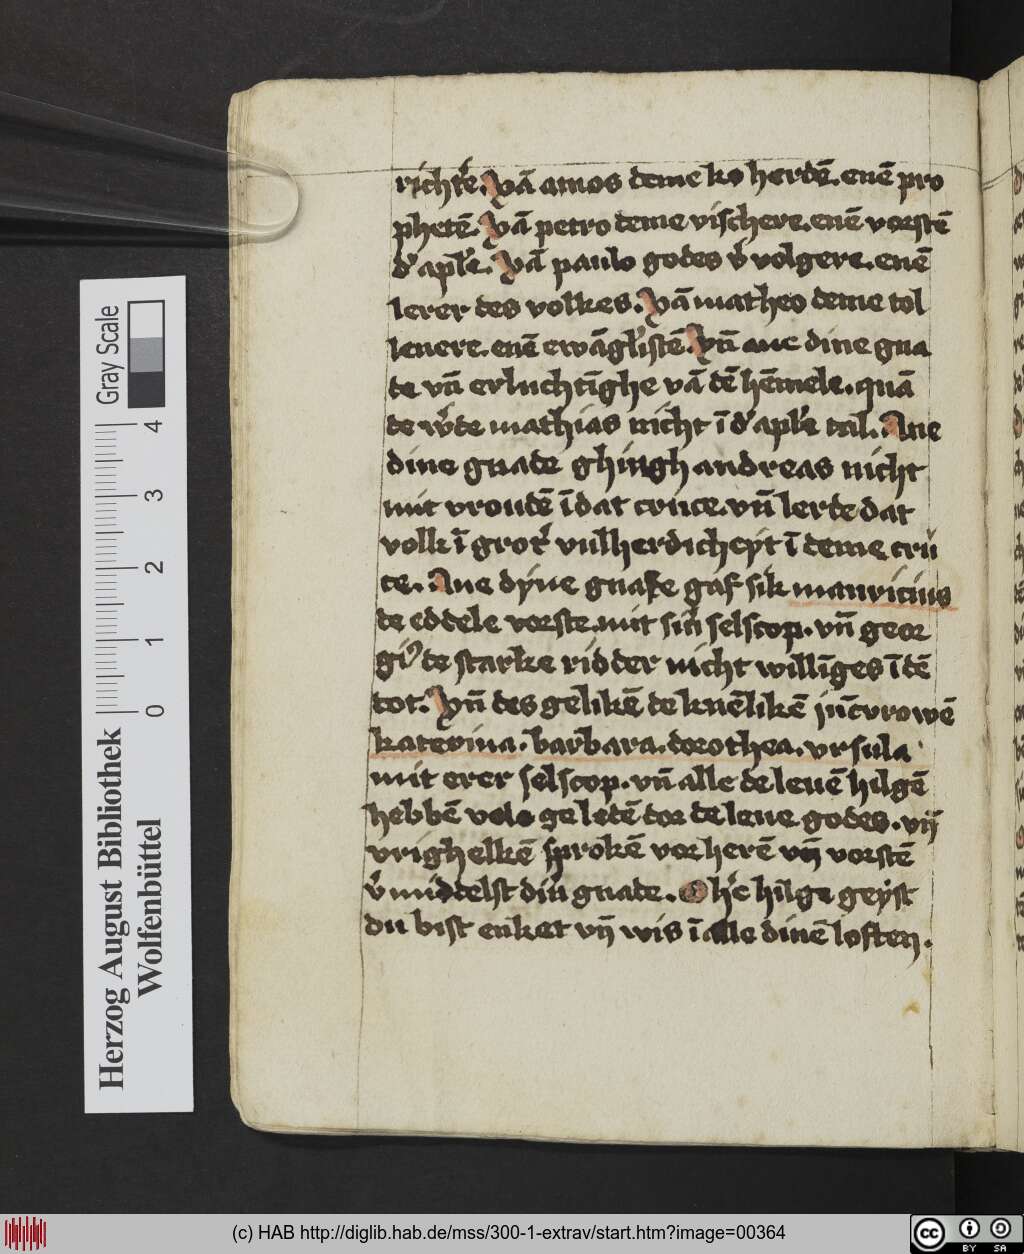 richt'e. Vā amos deme ko herdē. enē pro
phetē. Vā petro deme vischere. enē vorstē
d' apl'e. Vā paulo godes v'volgere. enē
lerer des volkes. Vā matheo deme tol
lenere. enē ewāgl'istē. Vn̄ ane dine gna
de vn̄ erluchtīghe vā dē hēmele. quā
de w'de mathias nicht ī d' apl'e tal. Ane
dine gnade ghingh andreas nicht
mit vroudē ī dat cruce. vn̄ lerde dat
volk ī grot' vulherdicheyt ī deme crü
ce. Ane dyne gnade gaf sik mauricius
de eddele vorste mit sin' selscop. vn̄ geor
gi' de starke ridder nicht willīges ī dē
dot. Vn̄ des gelikē de kuēlikē jūcvrowē
katerina. barbara. dorothea. vrsula
mit erer selscop. vn̄ alle de leuē hilgē
hebbē vele geledē dor de leue godes. vn̄
vrighelkē sprokē vor herē vn̄ vorstē
v'middelst din' gnade. O h'e hilge geyst
du bist enket vn̄ wis ī alle dinē loften.
Herzog August Bibliothek
Wolfenbüttel
Gray Scale
0 1 2 3 4
(c) HAB http://diglib.hab.de/mss/300-1-extrav/start.htm?image=00364
cc BY SA